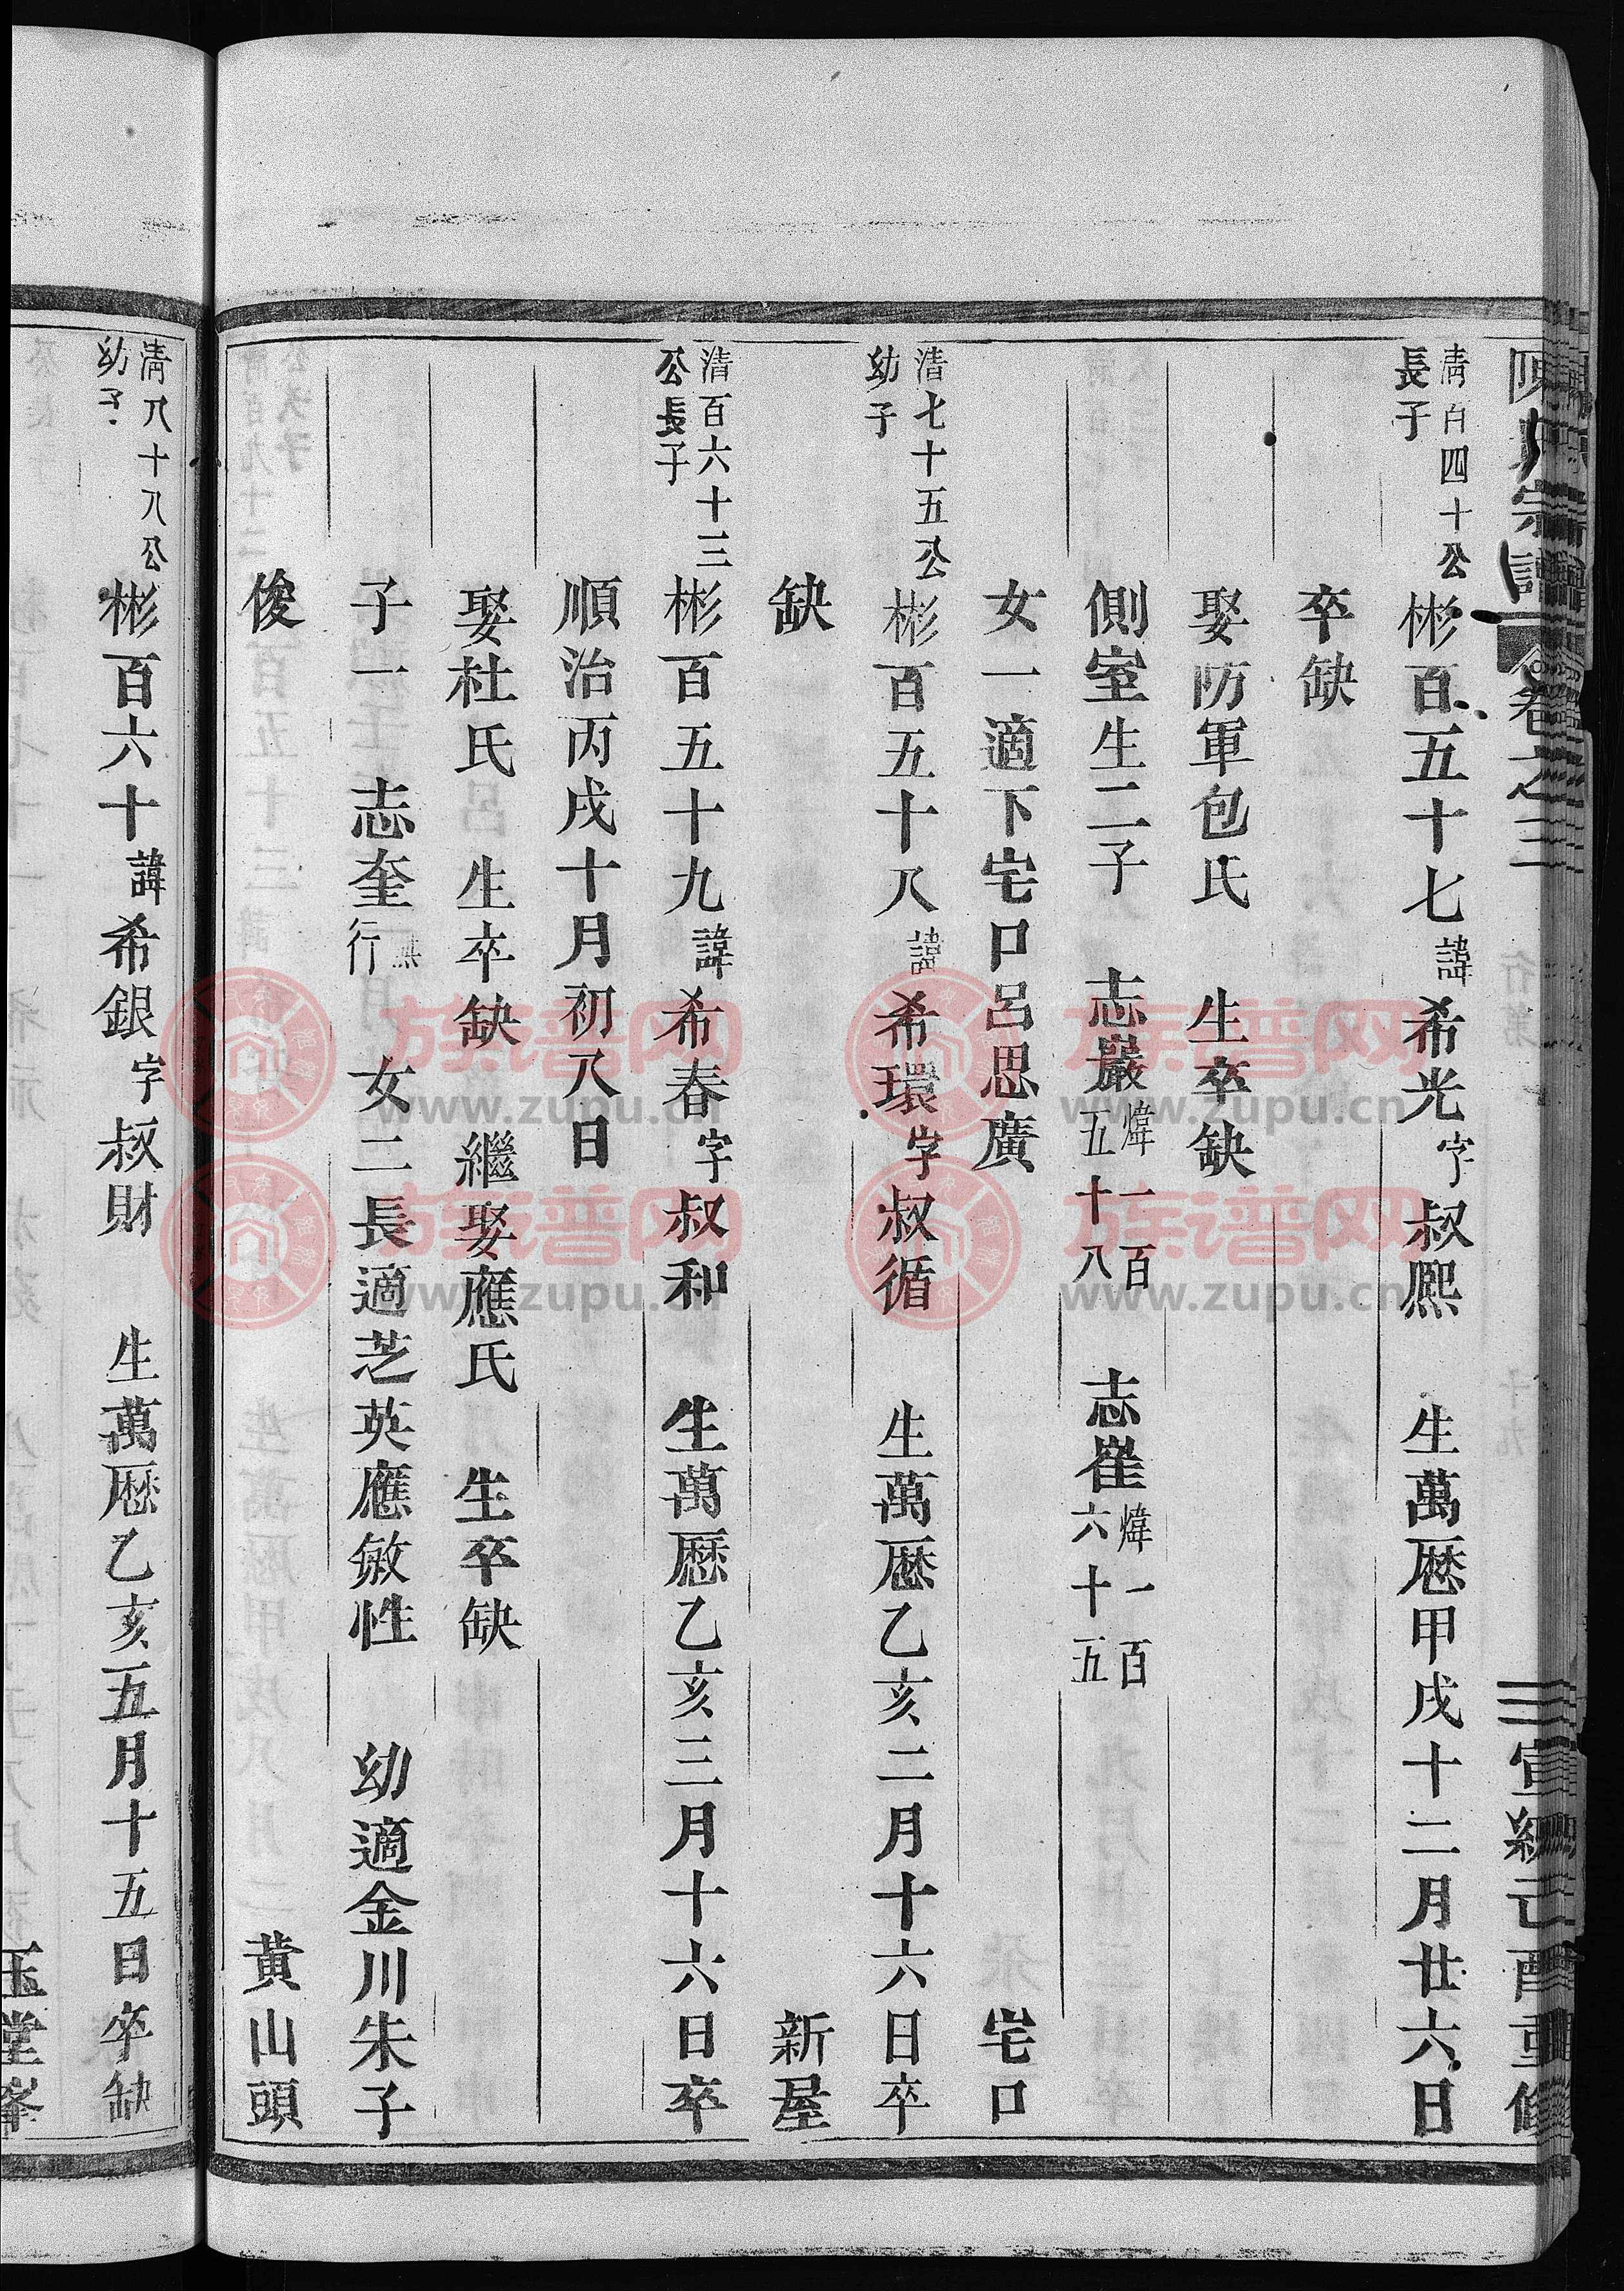 陳氏宗譜 卷之三 宣統己酉重修
清百四十公
長子
彬百五十七諱希光字叔熙 生萬曆甲戌十二月廿六日
卒缺
娶防軍包氏 生卒缺
側室生二子 志巖煒一百五十八 志崔煒一百六十五
女一適下宅口呂思廣 宅口
清七十五公
幼子
彬百五十八諱希環字叔循 生萬曆乙亥二月十六日卒
缺 新屋
清百六十三
公長子
彬百五十九諱希春字叔和 生萬曆乙亥三月十六日卒
順治丙戌十月初八日
娶杜氏 生卒缺 繼娶應氏 生卒缺
子一 志奎無行 女二長適芝英應斂性 幼適金川朱子
俊 黃山頭
清八十八公
幼子
彬百六十諱希銀字叔財 生萬曆乙亥五月十五日卒缺
玉堂峯
族谱网
www.zupu.cn
族谱网
www.zupu.cn
族谱网
www.zupu.cn
族谱网
www.zupu.cn